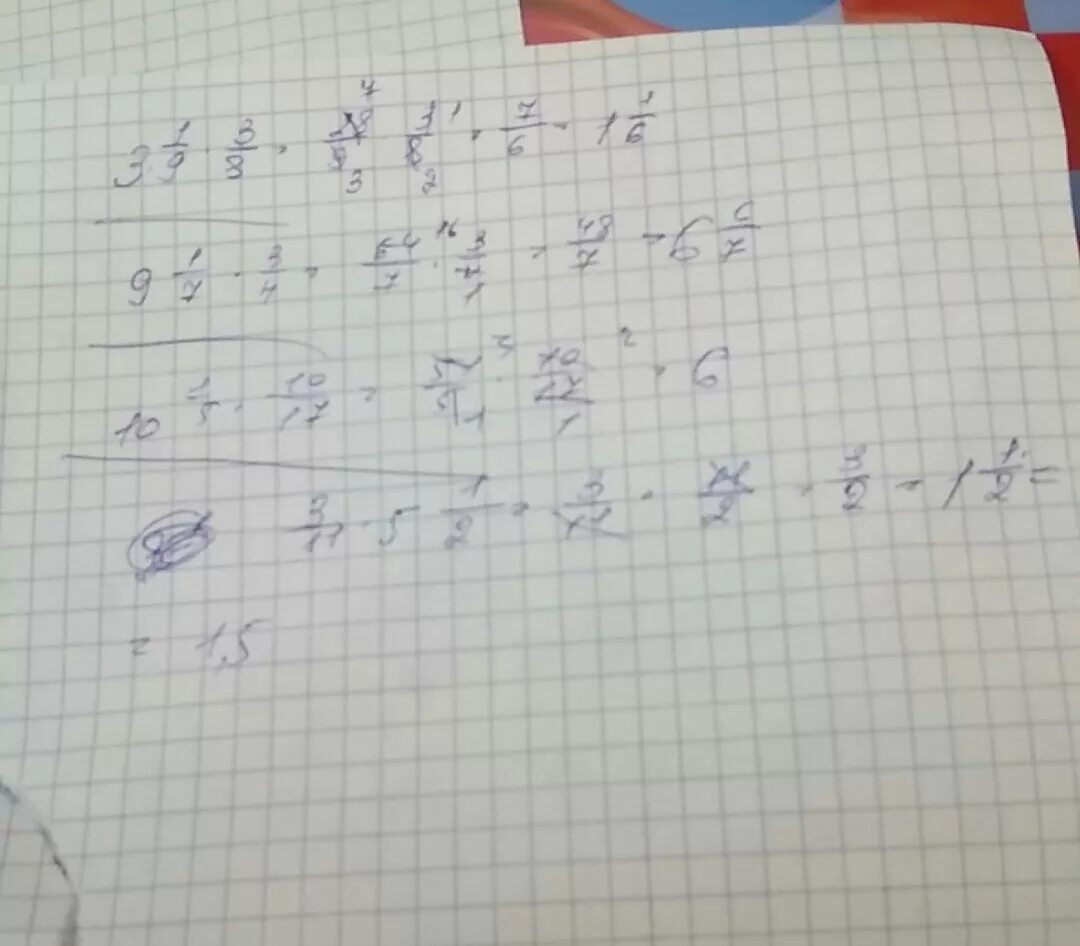 3 1/9 · 3/8 = 28/9 · 3/8 = 7/6 = 1 1/6
9 1/7 · 3/4 = 64/7 · 3/4 = 48/7 = 6 6/7
10 1/5 · 10/17 = 51/5 · 10/17 = 6
3/11 · 5 1/2 = 3/11 · 11/2 = 3/2 = 1 1/2 =
= 1,5